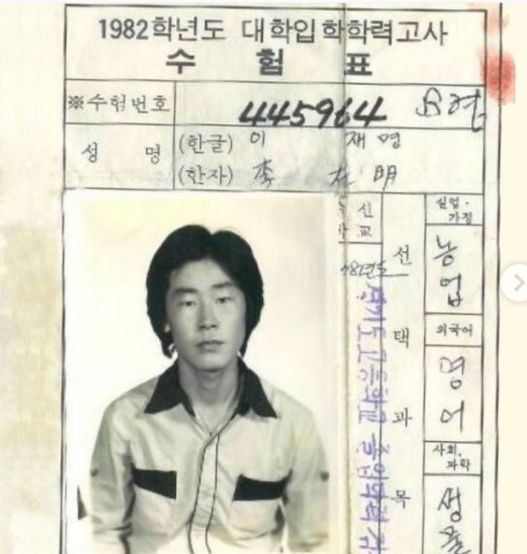 1982학년도 대학입학학력고사
수 험 표
※수험번호 445964 B형
성 명 (한글) 이 재 명
(한자) 李 在 明
신
교
선 택 과 목
실업·
가정
농업
외국어
영어
사회,
과학
생물
82년도
경기도